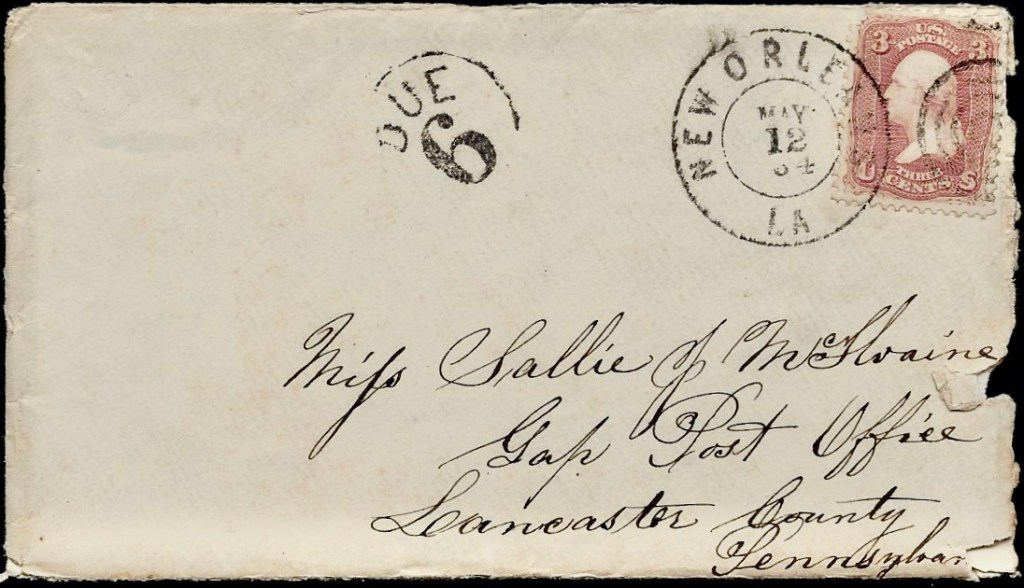 DUE
6
NEW ORLEANS
MAY
12
64
LA
3 U.S. 3
POSTAGE
THREE
U CENTS S
Miss Sallie J McIlvaine
Gap Post Office
Lancaster County
Pennsylvan